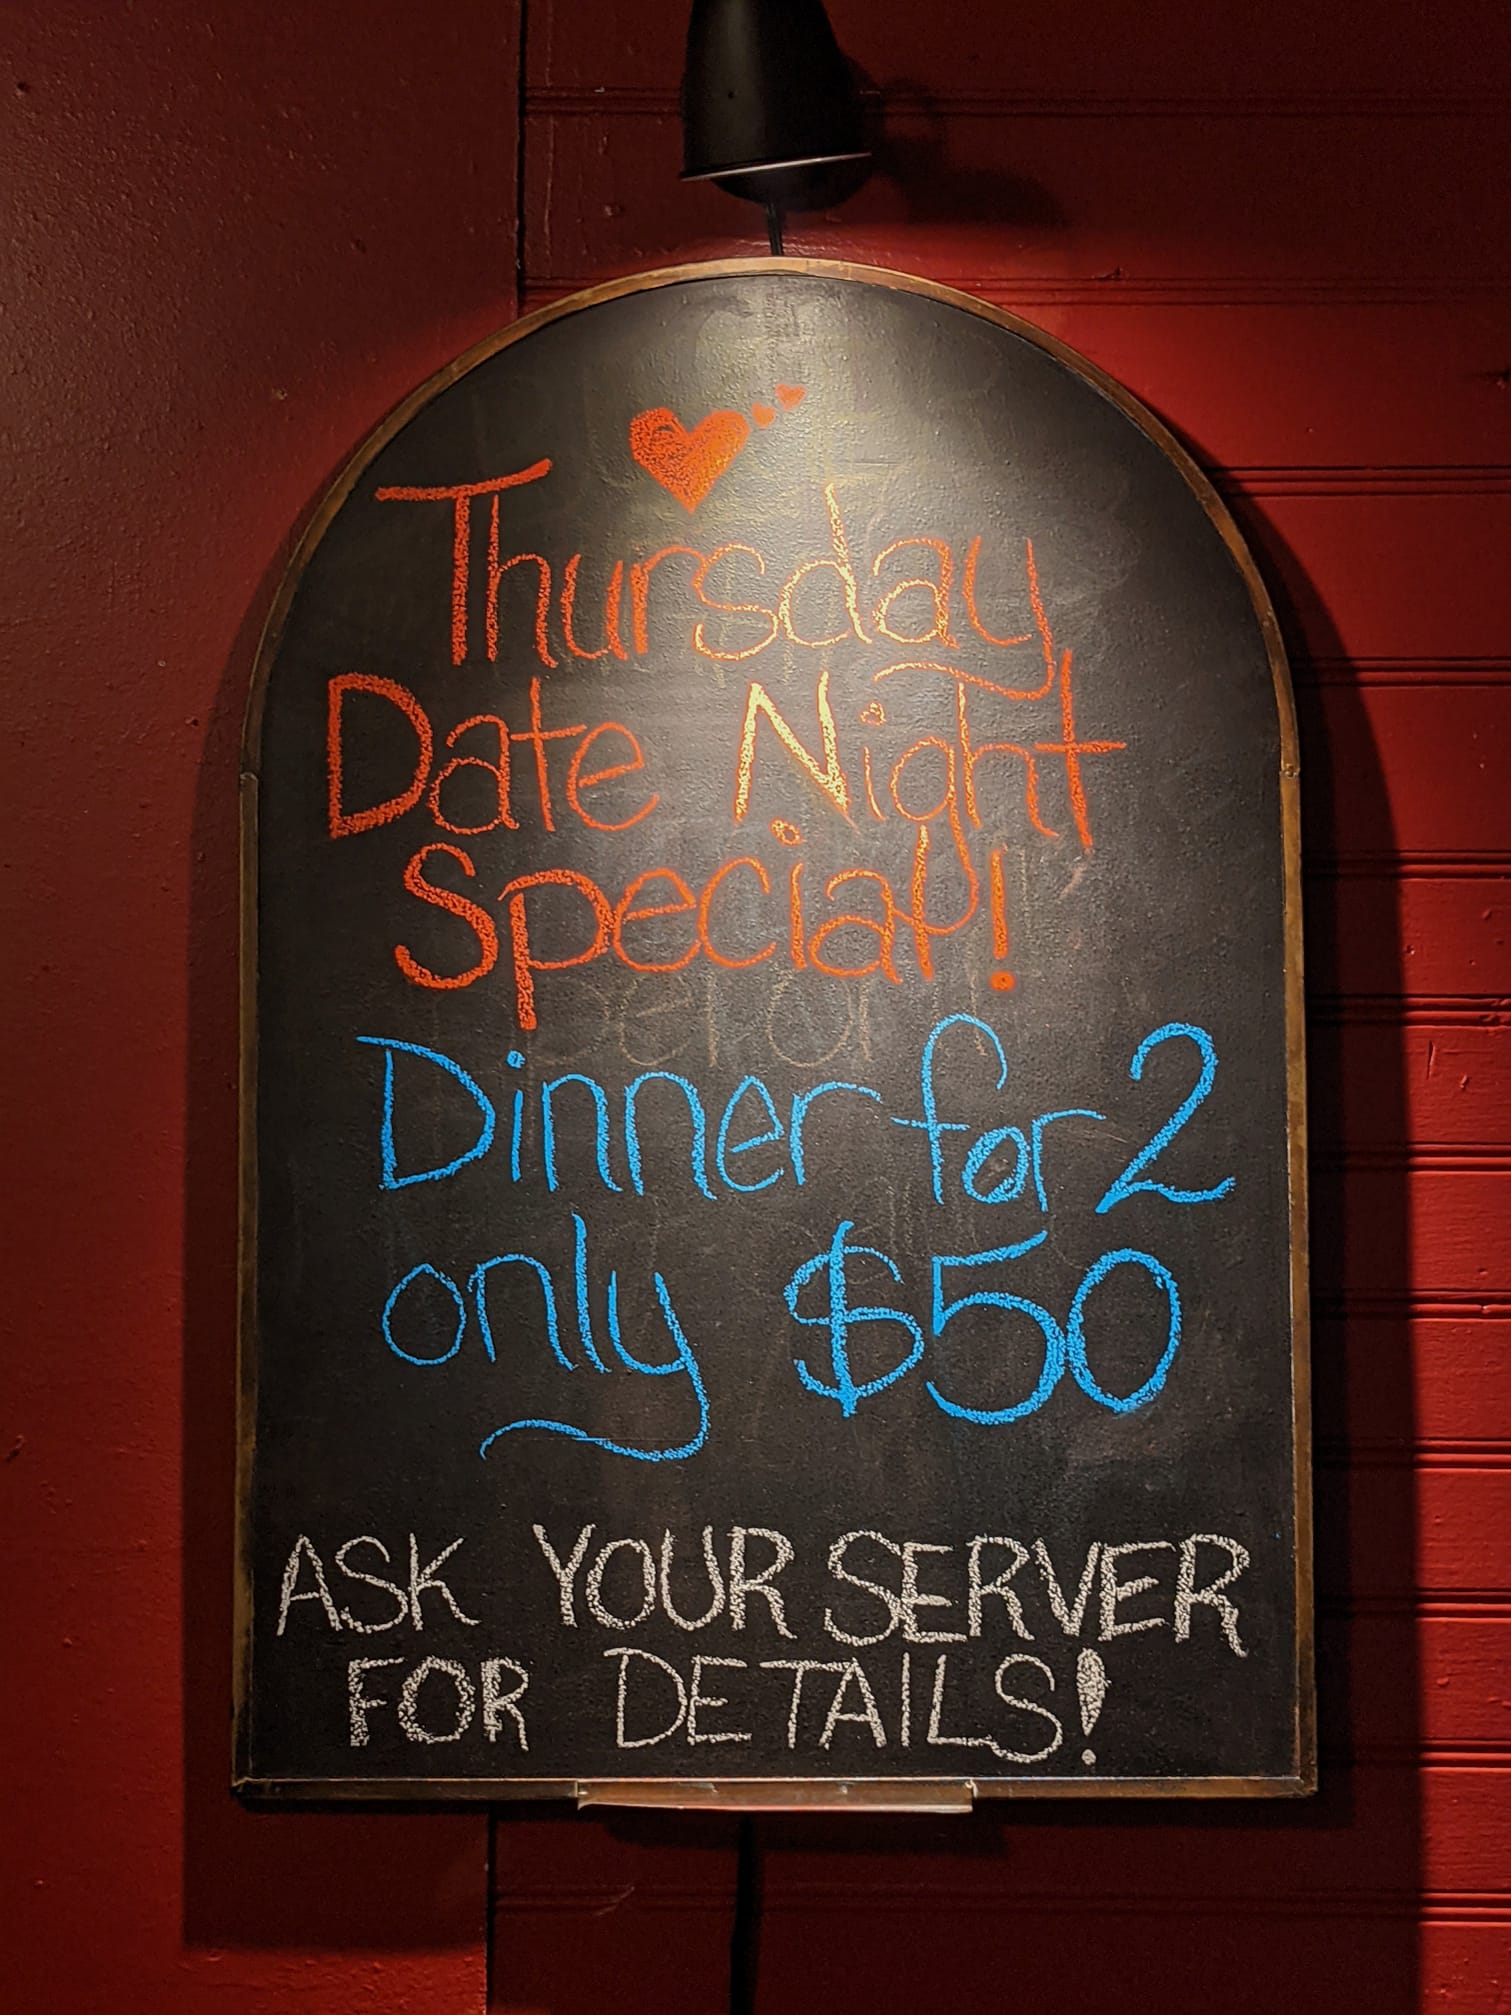 Thursday
Date Night
Special!
Dinner for 2
only $50
ASK YOUR SERVER
FOR DETAILS!